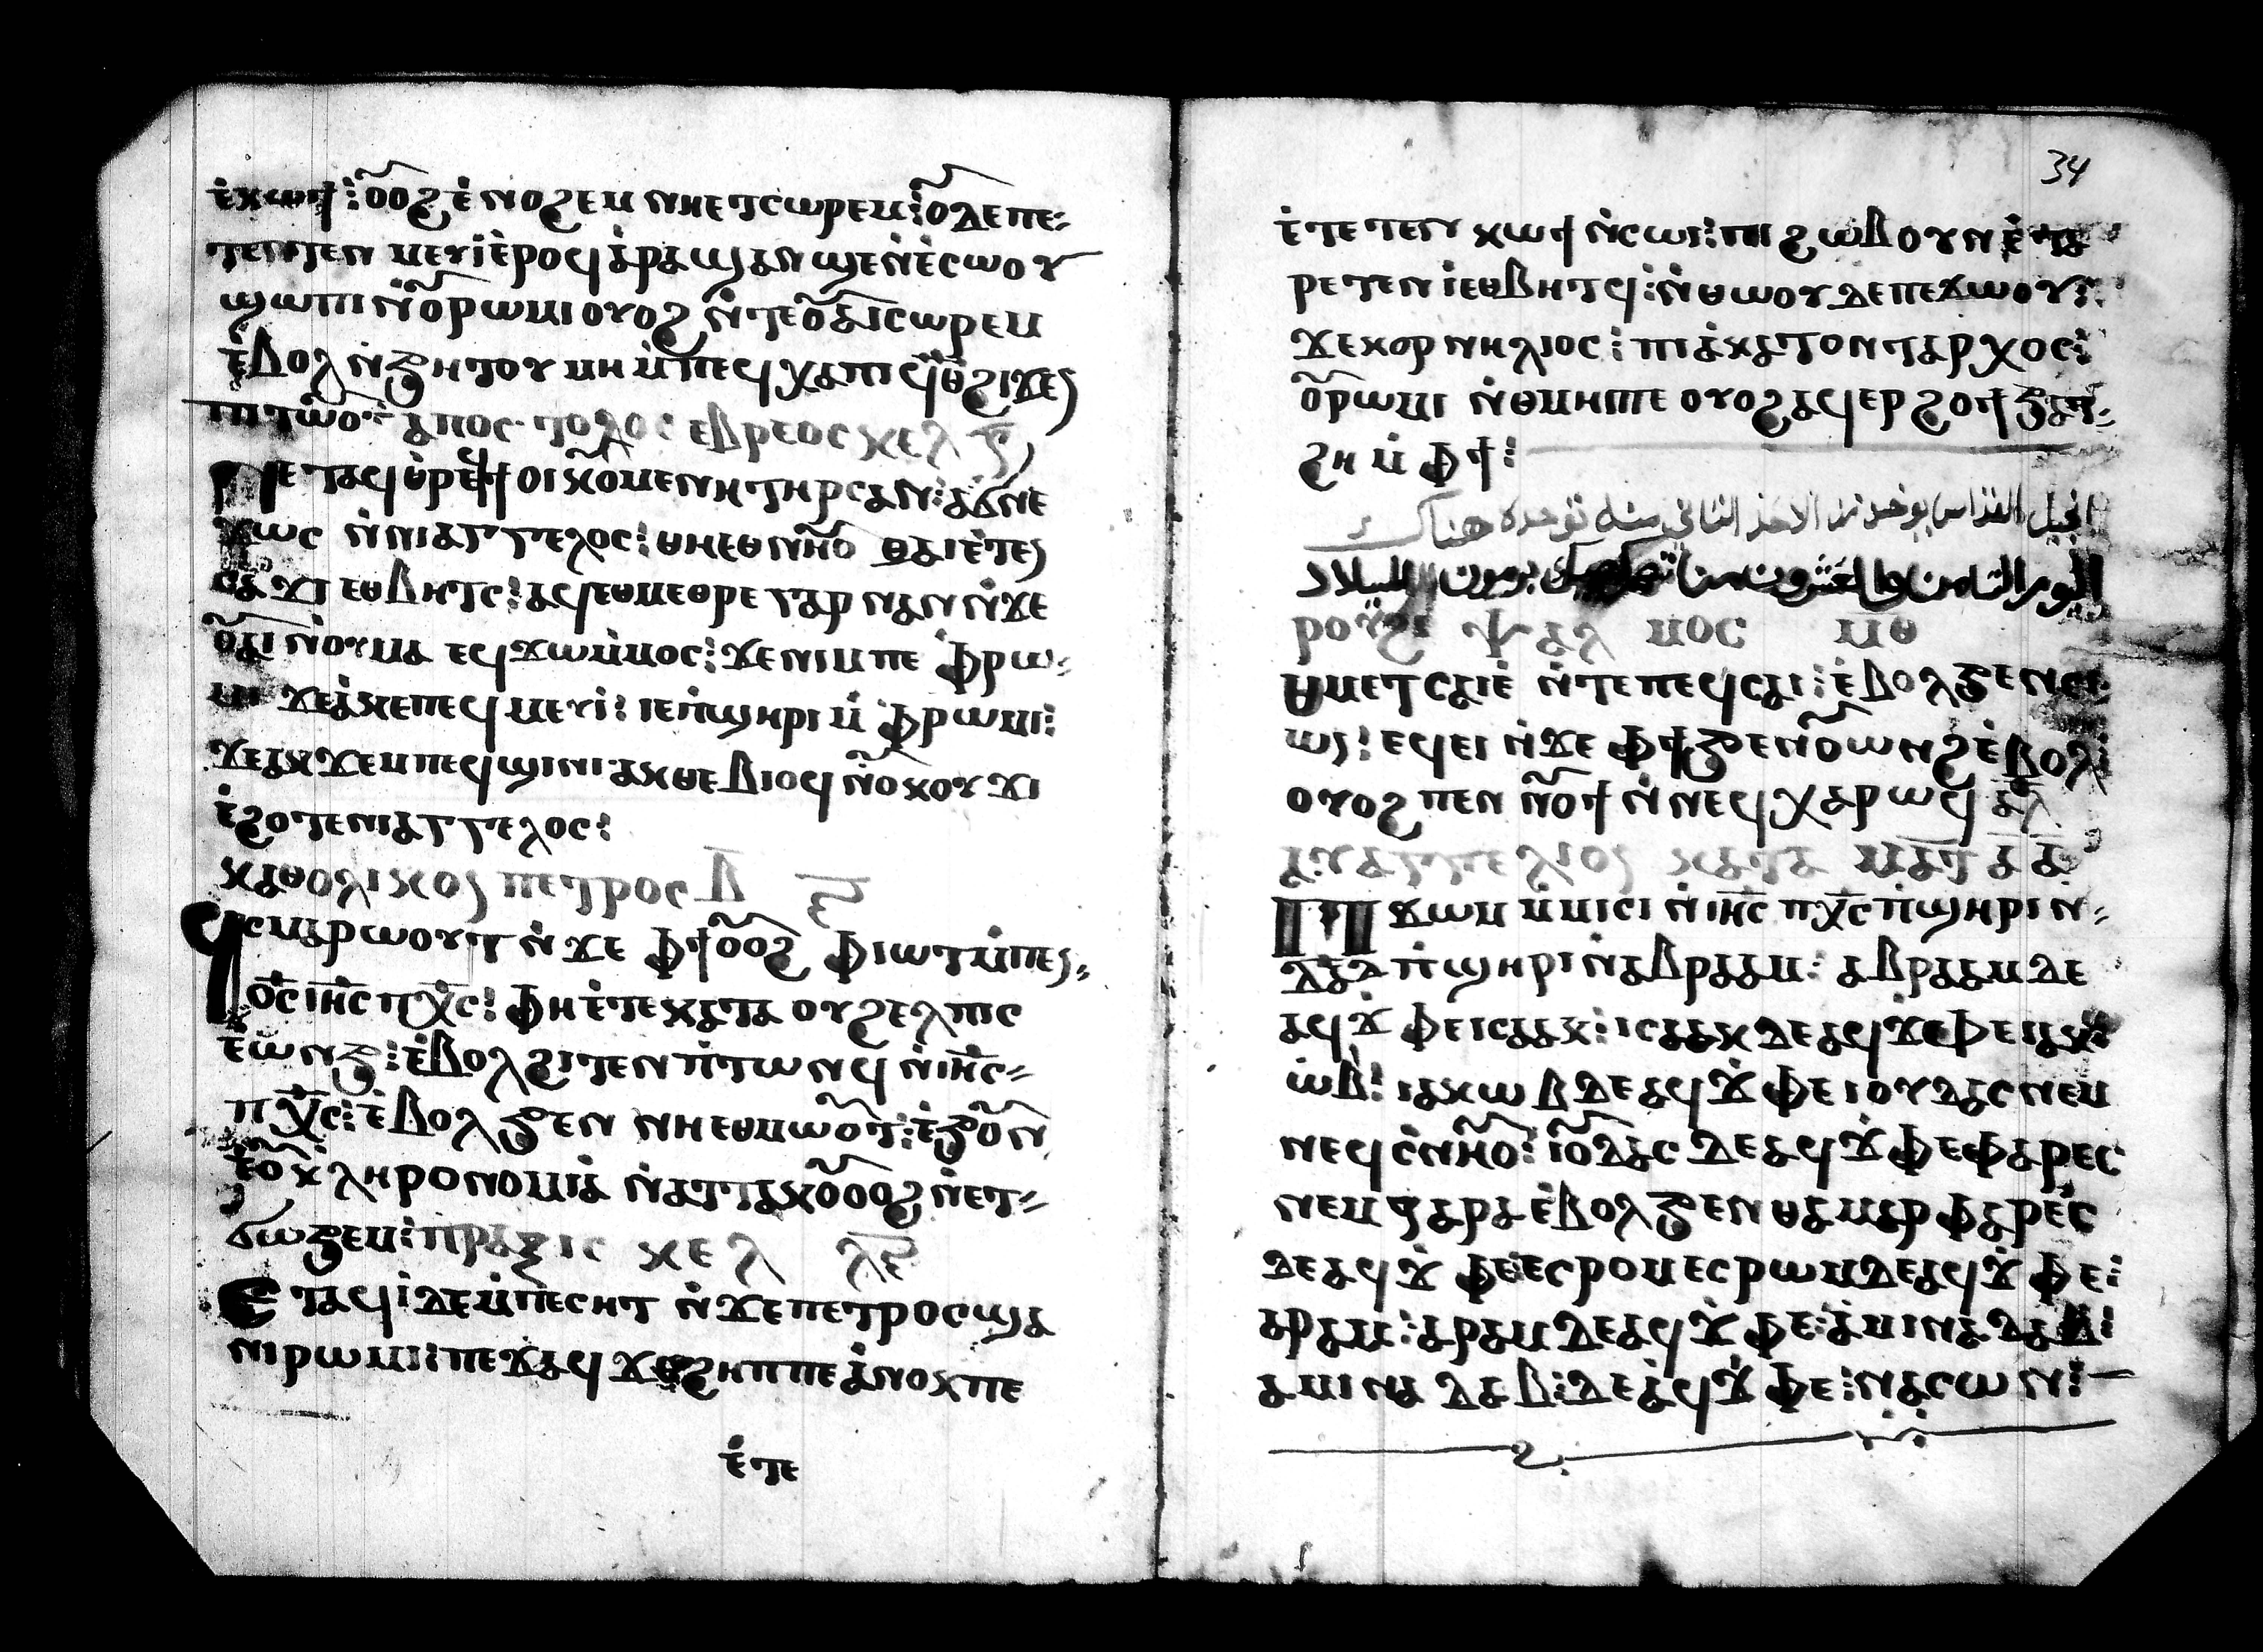 ⲉ̀ⲕⲱϯ: ⲟⲟϩ ⲉ̀ⲛⲟϩⲉⲙ ⲛⲏⲉⲧⲥⲱⲣⲉⲙ: ⲟⲇⲉⲡⲉ
ⲧⲉⲛⲧⲉⲛ ⲙⲉⲩⲓ̀ⲉ̀ⲣⲟϥ ⲁ̀ⲣⲁϣⲁⲛ ϣⲉⲛ̀ⲉ̀ⲥⲱⲟⲩ
ϣⲱⲡⲓ ⲛ̀ⲟⲣⲱⲙⲓ ⲟⲩⲟϩ ⲛ̀ⲧⲉⲟⲁⲓ ⲥⲱⲣⲉⲙ
ⲉ̀ⲃⲟⲗ ⲛ̀ϧⲏⲧⲟⲩ ⲙⲏ ⲙ̀ⲡⲉϥ ⲭⲁⲡⲓ ϥ̀ⲑ ϩⲓϫⲉⲛ
ⲡⲓⲧⲱⲟ ⲁⲡⲟⲥⲧⲟⲗⲟⲥ ⲉⲃⲣⲉⲟⲥ ⲕⲉⲗ ⲋ
ⲛⲉⲧⲁϥⲑ̀ⲣⲉ ϯⲟⲓⲕⲟⲙⲉⲛⲏ ⲧⲏⲣⲥ ⲁⲛ: ϭⲛⲉ
ϫⲱⲥ ⲛ̀ⲛⲓⲁⲅⲅⲉⲗⲟⲥ: ⲑⲏⲉⲑⲛⲏⲟ ⲑⲁⲓ ⲉ̀ⲧⲉⲛ
ⲥⲁϫⲓ ⲉⲑⲃⲏⲧⲥ: ⲁϥⲉⲣⲙⲉⲑⲣⲉ ⲅⲁⲣ ⲛⲁⲛ ⲛ̀ϫⲉ
ⲟⲩⲁⲓ ⲛ̀ⲟⲩⲙⲁ ⲉϥϫⲱ ⲙ̀ⲙⲟⲥ: ϫⲉⲛⲓⲙ ⲡⲉ ⲫⲣⲱ
ⲙⲓ ϫⲉⲁ̀ⲕⲉⲡⲉϥⲙⲉⲩⲓ: ⲓⲉ ⲡ̀ϣⲏⲣⲓ ⲙ̀ⲫⲣⲱⲙⲓ:
ϫⲉⲁⲕϫⲉⲙⲡⲉϥϣⲓⲛⲓ ⲁⲕⲑⲉⲃⲓⲟϥ ⲛ̀ⲟⲕⲟⲩϫⲓ
ⲉ̀ϩⲟⲧⲉⲛⲓⲁⲅⲅⲉⲗⲟⲥ:
ⲕⲁⲑⲟⲗⲓⲕⲟⲛ ⲡⲉⲧⲣⲟⲥ ⲁ̅
ϥⲥⲙⲁⲣⲱⲟⲩⲧ ⲛ̀ϫⲉ ⲫϯ ⲟⲟϩ ⲫⲓⲱⲧ ⲙ̀ⲡⲉⲛ
ⲟ̅ⲥ̅ ⲓⲏ̅ⲥ̅ ⲡⲭ̅ⲥ̅: ⲫⲏⲉ̀ⲧⲉ ⲕⲁⲧⲁ ⲟⲩϩⲉⲗⲡⲓⲥ
ⲉⲱⲛϧ: ⲉ̀ⲃⲟⲗϩⲓⲧⲉⲛ ⲡ̀ⲧⲱⲛϥ ⲛ̀ⲓⲏ̅ⲥ̅
ⲡⲭ̅ⲥ̅: ⲉ̀ⲃⲟⲗϧⲉⲛ ⲛⲏⲉⲑⲙⲱⲟⲧ: ⲉ̀ϧⲟⲛ
ⲉ̀ⲟⲕ̀ⲗⲏⲣⲟⲛⲟⲙⲓⲁ ⲛ̀ⲁⲧⲧⲁⲕⲟ ⲟⲟϩ ⲛ̀ⲉⲧ
ϭⲱϧⲉⲙ: ⲡⲣⲁⲝⲓⲥ ⲕⲉⲗ ⲗⲉ̅
ⲉⲧⲁϥⲓ̀ⲇⲉ ⲙ̀ⲡⲉⲥⲏⲧ ⲛ̀ϫⲉ ⲡⲉⲧⲣⲟⲥ ϣⲁ
ⲛⲓⲣⲱⲙⲓ: ⲡⲉϫⲁϥ ϫⲉϩⲏⲡⲡⲉ ⲁ̀ⲛⲟⲕ ⲡⲉ
ⲉ̀ⲧⲉ
34
ⲉ̀ⲧⲉⲧⲉⲛ ⲕⲱϯ ⲛ̀ⲥⲱⲓ: ⲡⲓϩⲱⲃ ⲟⲩⲛ ⲉ̀ⲧⲁ
ⲣⲉⲧⲉⲛⲓ̀ ⲉⲑⲃⲏⲧϥ: ⲛ̀ⲑⲱⲟⲩ ⲇⲉ ⲡⲉϫⲱⲟⲩ:
ϫⲉⲕⲟⲣⲛⲏⲗⲓⲟⲥ: ⲡⲓⲁ̀ⲕⲁⲧⲟⲛⲧⲁⲣⲭⲟⲥ:
ⲟⲣⲱⲙⲓ ⲛ̀ⲑⲙⲏⲡⲉ ⲟⲩⲟϩ ⲁϥⲉⲣϩⲟϯ ϧⲁⲧ
ϩⲏ ⲙ̀ⲫϯ:
انجيل القداس يوخد من الاحد الثاني منه توجده هناك
اليوم الثامن والعشرون من كيهك برمون الميلاد
ⲣⲟⲩϩⲓ ⲯⲁⲗⲙⲟⲥ ⲙⲑ
ⲑⲙⲉⲧⲥⲁⲓⲉ̀ ⲛ̀ⲧⲉ ⲡⲉϥⲥⲁⲓ: ⲉ̀ⲃⲟⲗϧⲉⲛ ⲥⲓ
ⲱⲛ: ⲉϥⲉⲓ ⲛ̀ϫⲉ ⲫϯ ϧⲉⲛ ⲟⲱⲛϩ ⲉ̀ⲃⲟⲗ
ⲟⲩⲟϩ ⲡⲉⲛⲛⲟϯ ⲛ̀ⲛⲉϥⲭⲁⲣⲱϥ ⲁ̅ⲗ̅
ⲁⲩⲁⲅⲅⲉⲗⲓⲟⲛ ⲕⲁⲧⲁ ⲙⲁⲧ ⲁ ⲁ
ⲡϫⲱⲙ ⲙ̀ⲙⲓⲥⲓ ⲛ̀ⲓⲏ̅ⲥ̅ ⲡⲭ̅ⲥ̅ ⲡ̀ϣⲏⲣⲓ ⲛ
ⲇⲁⲇ ⲡ̀ϣⲏⲣⲓ ⲛ̀ⲁⲃⲣⲁⲁⲙ: ⲁⲃⲣⲁⲁⲙ ⲇⲉ
ⲁϥϫ̀ⲫⲉ ⲓⲥⲁⲁⲕ: ⲓⲥⲁⲁⲕ ⲇⲉ ⲁϥϫ̀ⲫⲉ ⲓⲁⲕ
ⲱⲃ: ⲓⲁⲕⲱⲃ ⲇⲉ ⲁϥϫ̀ⲫⲉ ⲓⲟⲩⲇⲁⲥ ⲛⲉⲙ
ⲛⲉϥⲥ̀ⲛⲏⲟ: ⲓⲟⲇⲁⲥ ⲇⲉ ⲁϥϫ̀ⲫⲉ ⲫⲁⲣⲉⲥ
ⲛⲉⲙ ⲍⲁⲣⲁ ⲉ̀ⲃⲟⲗϧⲉⲛ ⲑⲁⲙⲁⲣ ⲫⲁⲣⲉⲥ
ⲇⲉ ⲁϥϫ̀ⲫⲉ ⲉⲥⲣⲟⲙ ⲉⲥⲣⲱⲙ ⲇⲉ ⲁϥϫ̀ⲫⲉ:
ⲁⲣⲁⲙ: ⲁⲣⲁⲙ ⲇⲉ ⲁϥϫ̀ⲫⲉ: ⲁⲙⲓⲛⲁⲇⲁⲃ:
ⲁⲙⲓⲛⲁⲇⲁⲃ: ⲇⲉ ⲁϥϫ̀ⲫⲉ: ⲛⲁⲥⲱⲛ: